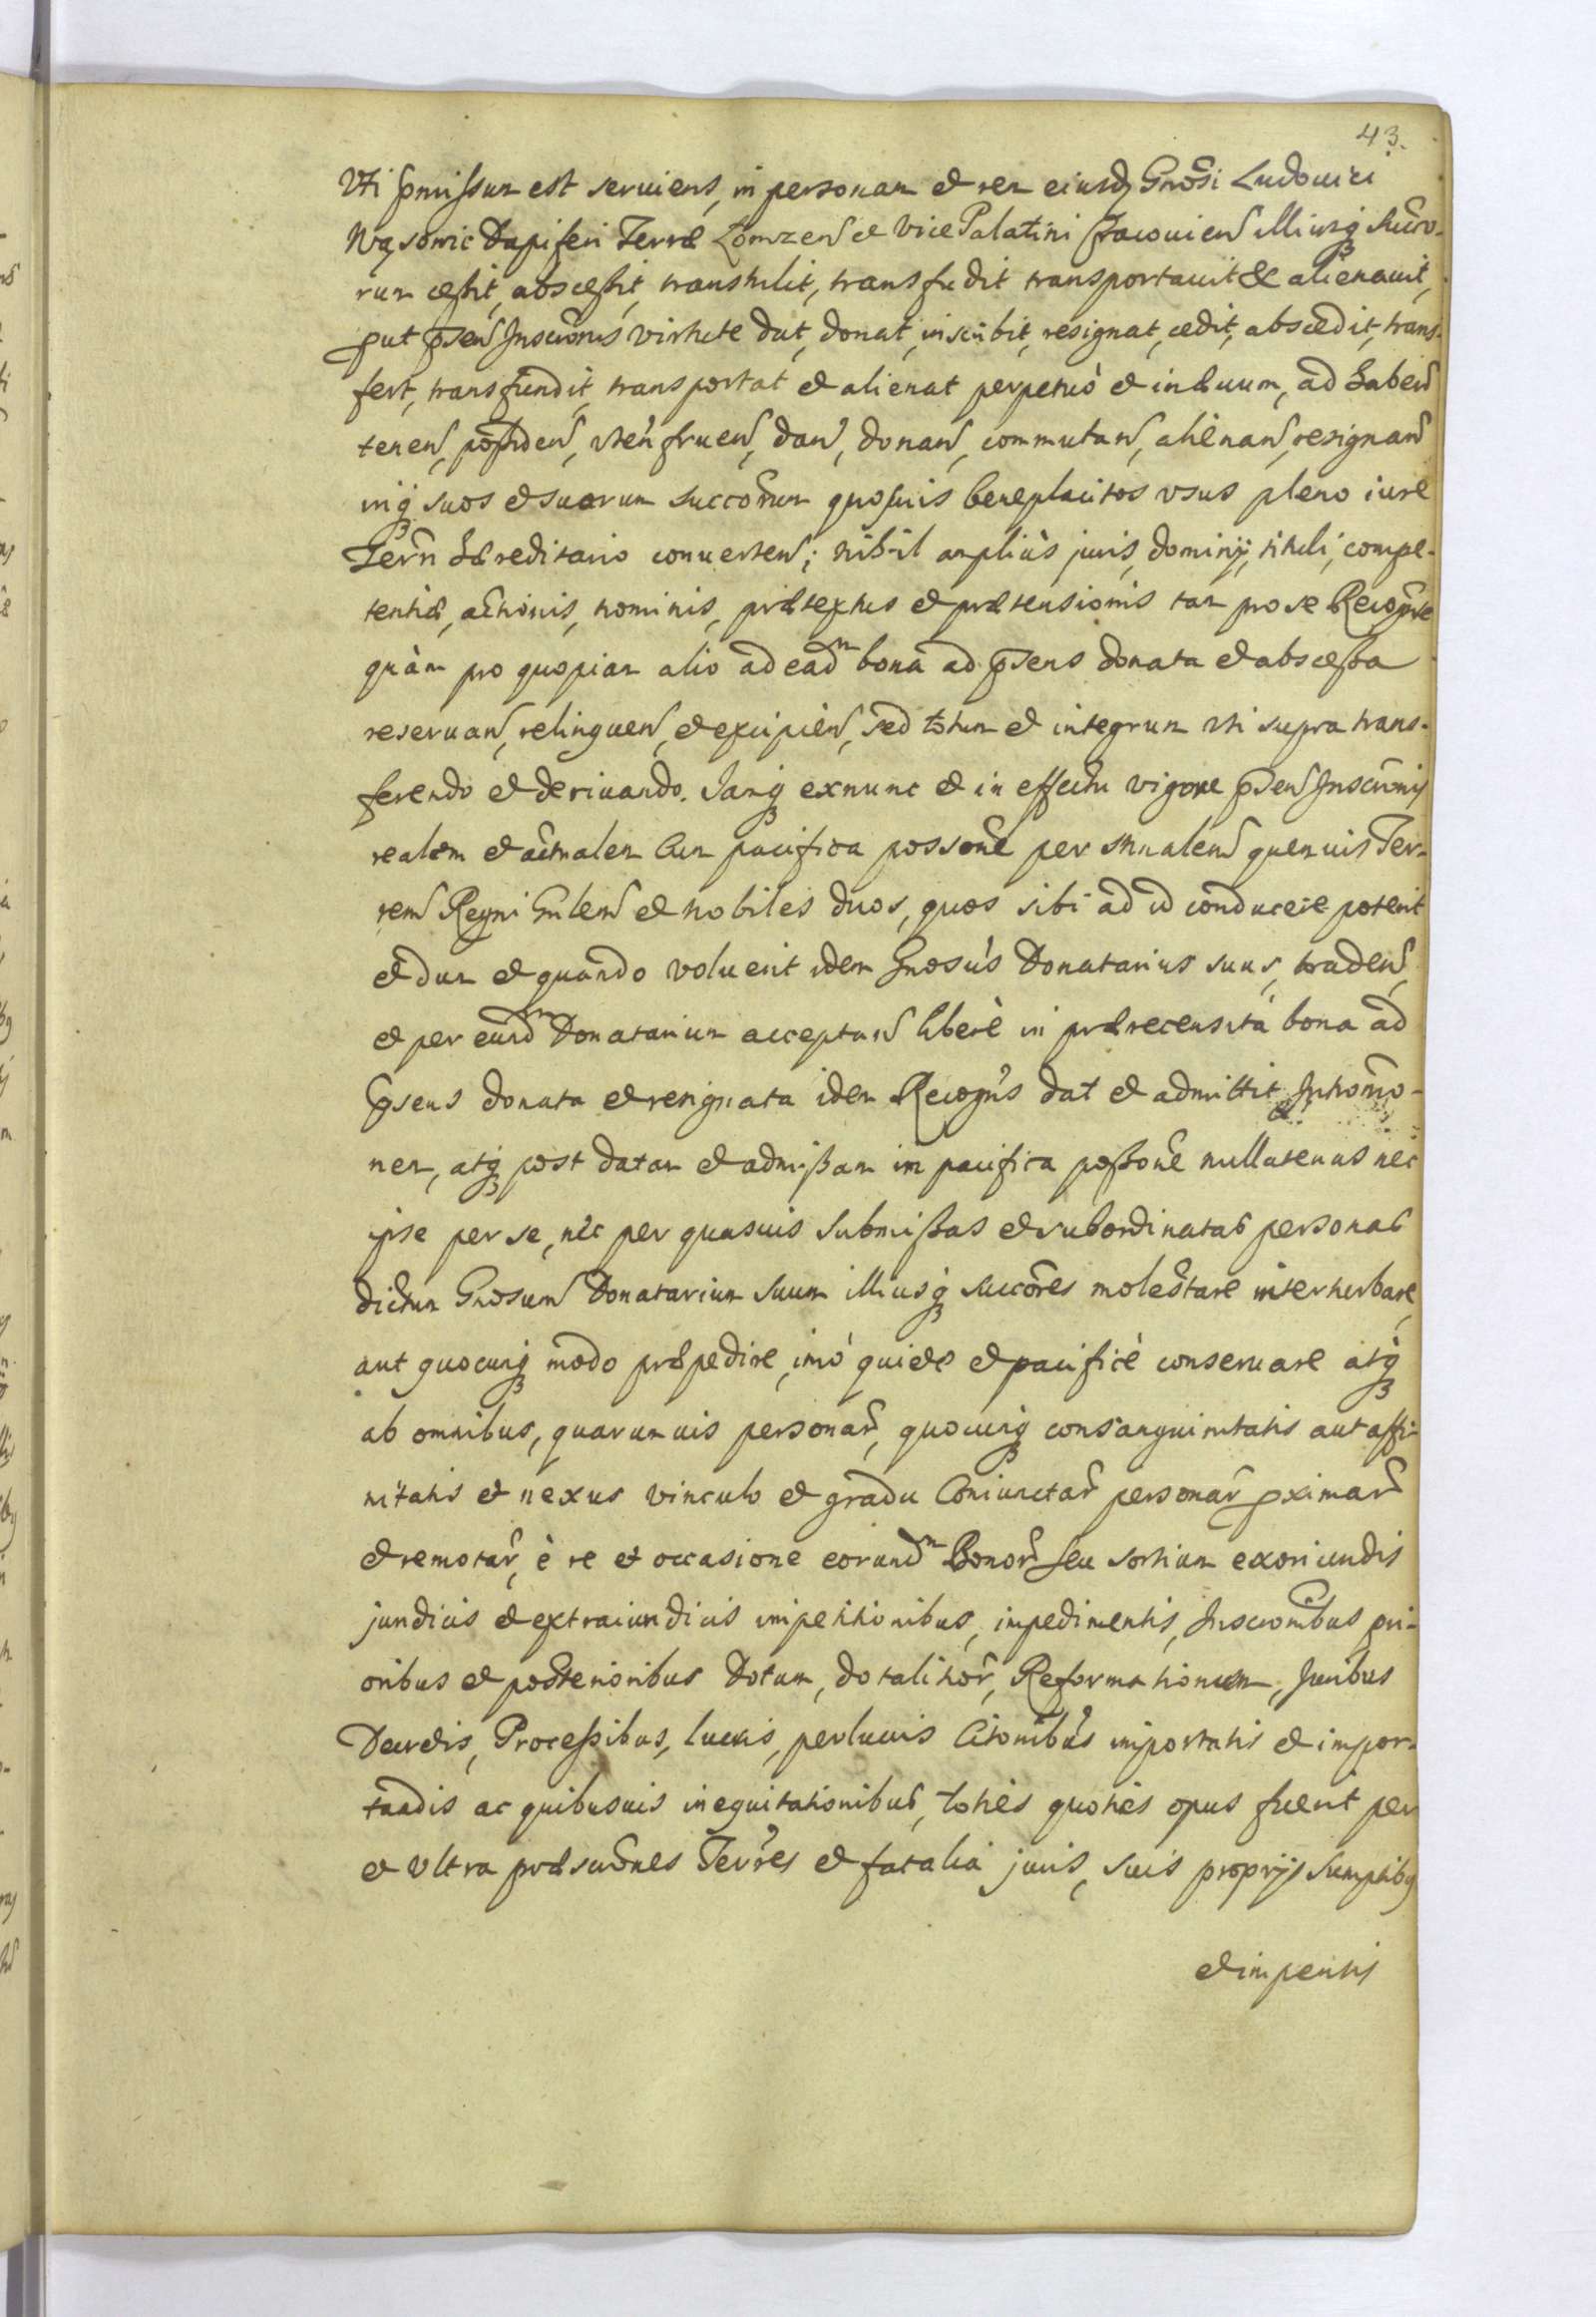 43.
Vti pmissum est seruiens, in personam et rem eiusdem Gnosi Ludouici
Wąsowic Dapiferi Terræ Lomzen et Vice Palatini Cracouien illiusq Succo-
rum cessit, abscessit, transtulit, transfudit transportauit et alienauit,
put psen Inscronis virtute dat, donat, inscribit, resignat, cedit, abscedit, trans-
fert, transfundit, transportat et alienat perpetuò et in æuum, ad haben
tenen, possiden, vten fruen, dan, donan, commutan, alienan, resignan
inq suos et suorum succorum quosuis beneplacitos vsus pleno iure
Terrn hæreditario conuerten; nihil ampliùs juris, dominij, tituli, compe-
tentiæ, actionis, nominis, prætextus et prætensionis tam pro se Recognte
quàm pro quopiam alio ad eadm bona ad psens donata et abscessa
reseruan, relinquen, et excipien, sed totum et integrum vti supra trans-
ferendo et deriuando. Iamq exnunc et in effectu vigore psen Inscronis
realem et actualem cum pacifica possone per Mnalem quemuis Ter-
ren Regni Gnlem et nobiles duos, quos sibi ad id conducere poterit
et dum et quando voluerit idem Gnosus Donatarius suus, traden
et per eundm Donatarium acceptan liberè in prærecensita bona ad
psens donata et resignata idem Recogns dat et admittit Intromo-
nem, atq post datam et admissam in pacifica possone nullatenus nec
ipse per se, nec per quasuis submissas et subordinatas personas
dictum Gnosum Donatarium suum illiusq succores molestare interturbare,
aut quocunq modo præpedire, imò quietè et pacificè conseruare atq
ab omnibus, quarumuis personar, quocunq consanguinitatis aut affi-
nitatis et nexus vinculo et gradu Coniunctar personar pximar
et remotar, è re et occasione eorundm Bonor seu sortium exoriundis
jundicis et extraiundicis impetitionibus, impedimentis, Inscronibus pri-
oribus et posterioribus Dotum, dotalitior, Reformationum, Juribus
Decretis, Processibus, lucris, perlucris Citonibus importatis et impor-
tandis ac quibusuis inequitationibus, toties quoties opus fuerit per
et vltra præscrones Terrres et fatalia juris, suis proprijs sumptibus
et impensis